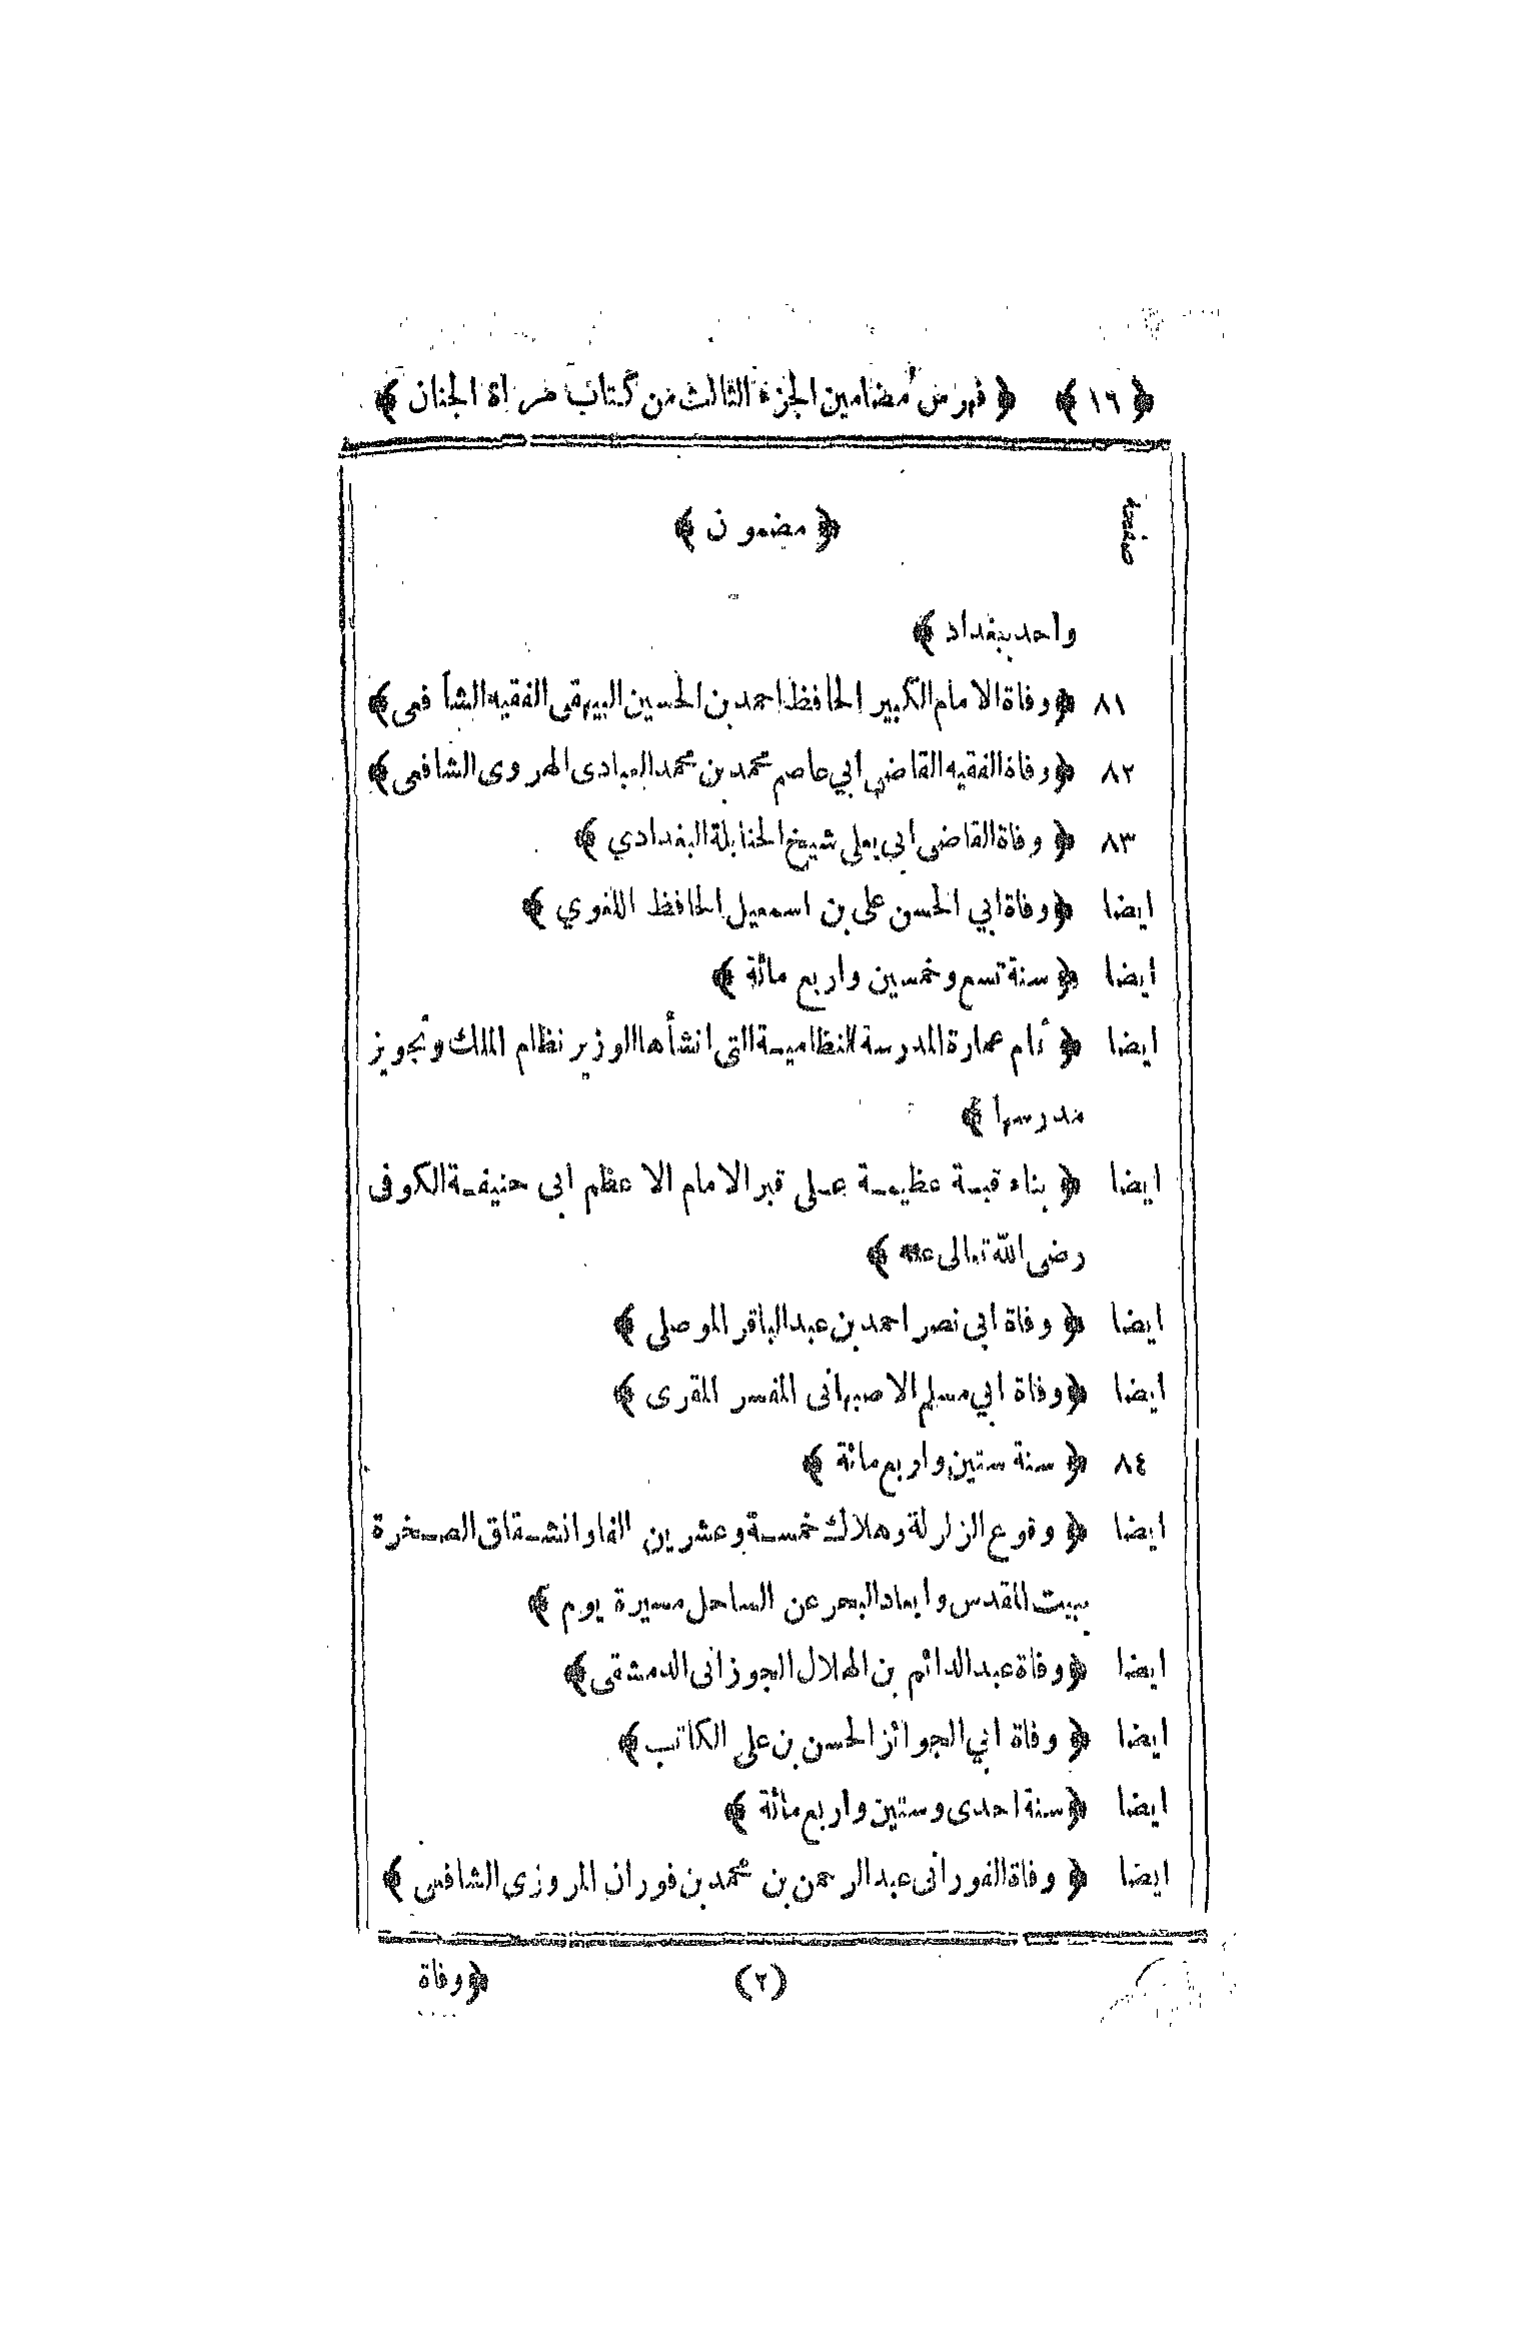 ﴿ ١٦ ﴾ ﴿ فهرس مضامين الجزء الثالث من كتاب مراة الجنان ﴾
صفحه ﴿ مضمون ﴾
واحد ببغداد ﴾
٨١ ﴿ وفاة الامام الكبير الحافظ احمد بن الحسين البيهقى الفقيه الشافعى ﴾
٨٢ ﴿ وفاة الفقيه القاضى ابي عاصم محمد بن محمد العبادى الهروى الشافعى ﴾
٨٣ ﴿ وفاة القاضى ابي يعلى شيخ الحنابلة البغدادي ﴾
ايضا ﴿ وفاة ابي الحسن على بن اسمعيل الحافظ اللغوي ﴾
ايضا ﴿ سنة تسع وخمسين واربع مائة ﴾
ايضا ﴿ تمام عمارة المدرسة النظامية التى انشأها الوزير نظام الملك وتجويز
مدرسها ﴾
ايضا ﴿ بناء قبة عظيمة على قبر الامام الاعظم ابى حنيفة الكوفى
رضى الله تعالى عنه ﴾
ايضا ﴿ وفاة ابى نصر احمد بن عبد الباقر الموصلى ﴾
ايضا ﴿ وفاة ابي مسلم الاصبهانى المفسر المقرى ﴾
٨٤ ﴿ سنة ستين واربع مائة ﴾
ايضا ﴿ وقوع الزلزلة وهلاك خمسة وعشرين الفا وانشقاق الصخرة
ببيت المقدس وابعاد البحر عن الساحل مسيرة يوم ﴾
ايضا ﴿ وفاة عبد الدائم بن الهلال الجوزانى الدمشقى ﴾
ايضا ﴿ وفاة ابي الجوائز الحسن بن على الكاتب ﴾
ايضا ﴿ سنة احدى وستين واربع مائة ﴾
ايضا ﴿ وفاة الفورانى عبد الرحمن بن محمد بن فوران المروزى الشافعى ﴾
(٢) ﴿ وفاة